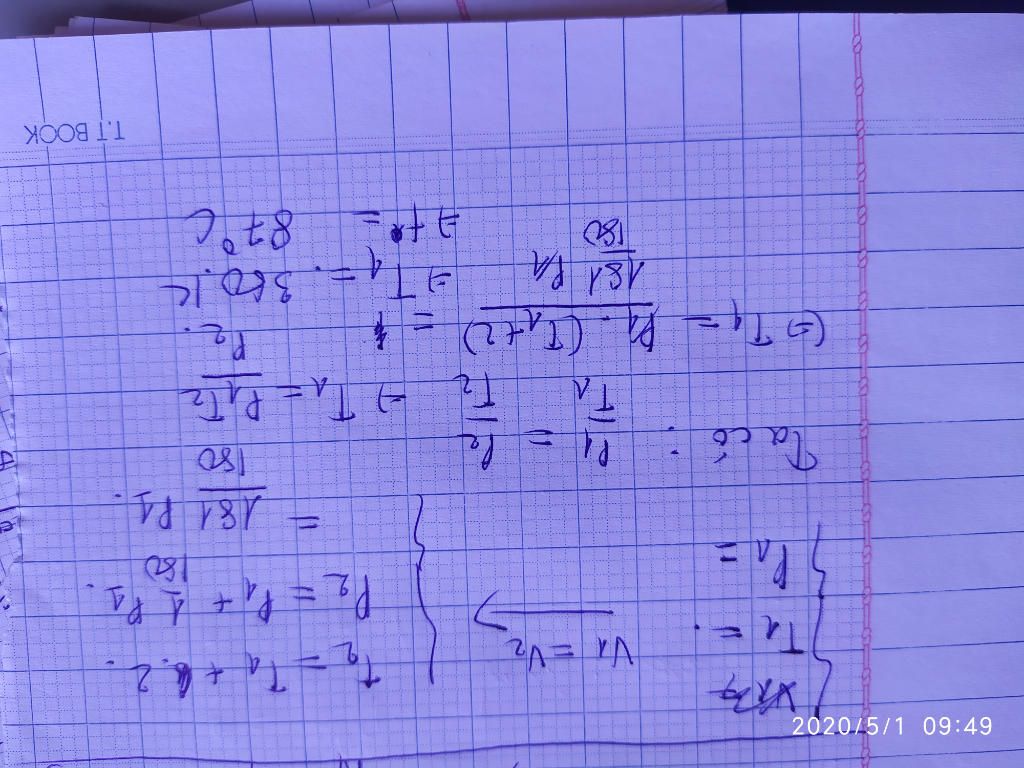 T.T BOOK
T1 =
P1 =
V1 = V2
T2 = T1 + 2.
P2 = P1 + 1/180 P1.
= 181/180 P1.
Ta có : P1/T1 = P2/T2 => T1 = P1T2/P2.
(=) T1 = P1.(T1+2) / 181/180 P1 =
=> T1 = 360.K
=> t1 = 87°C
2020/5/1 09:49